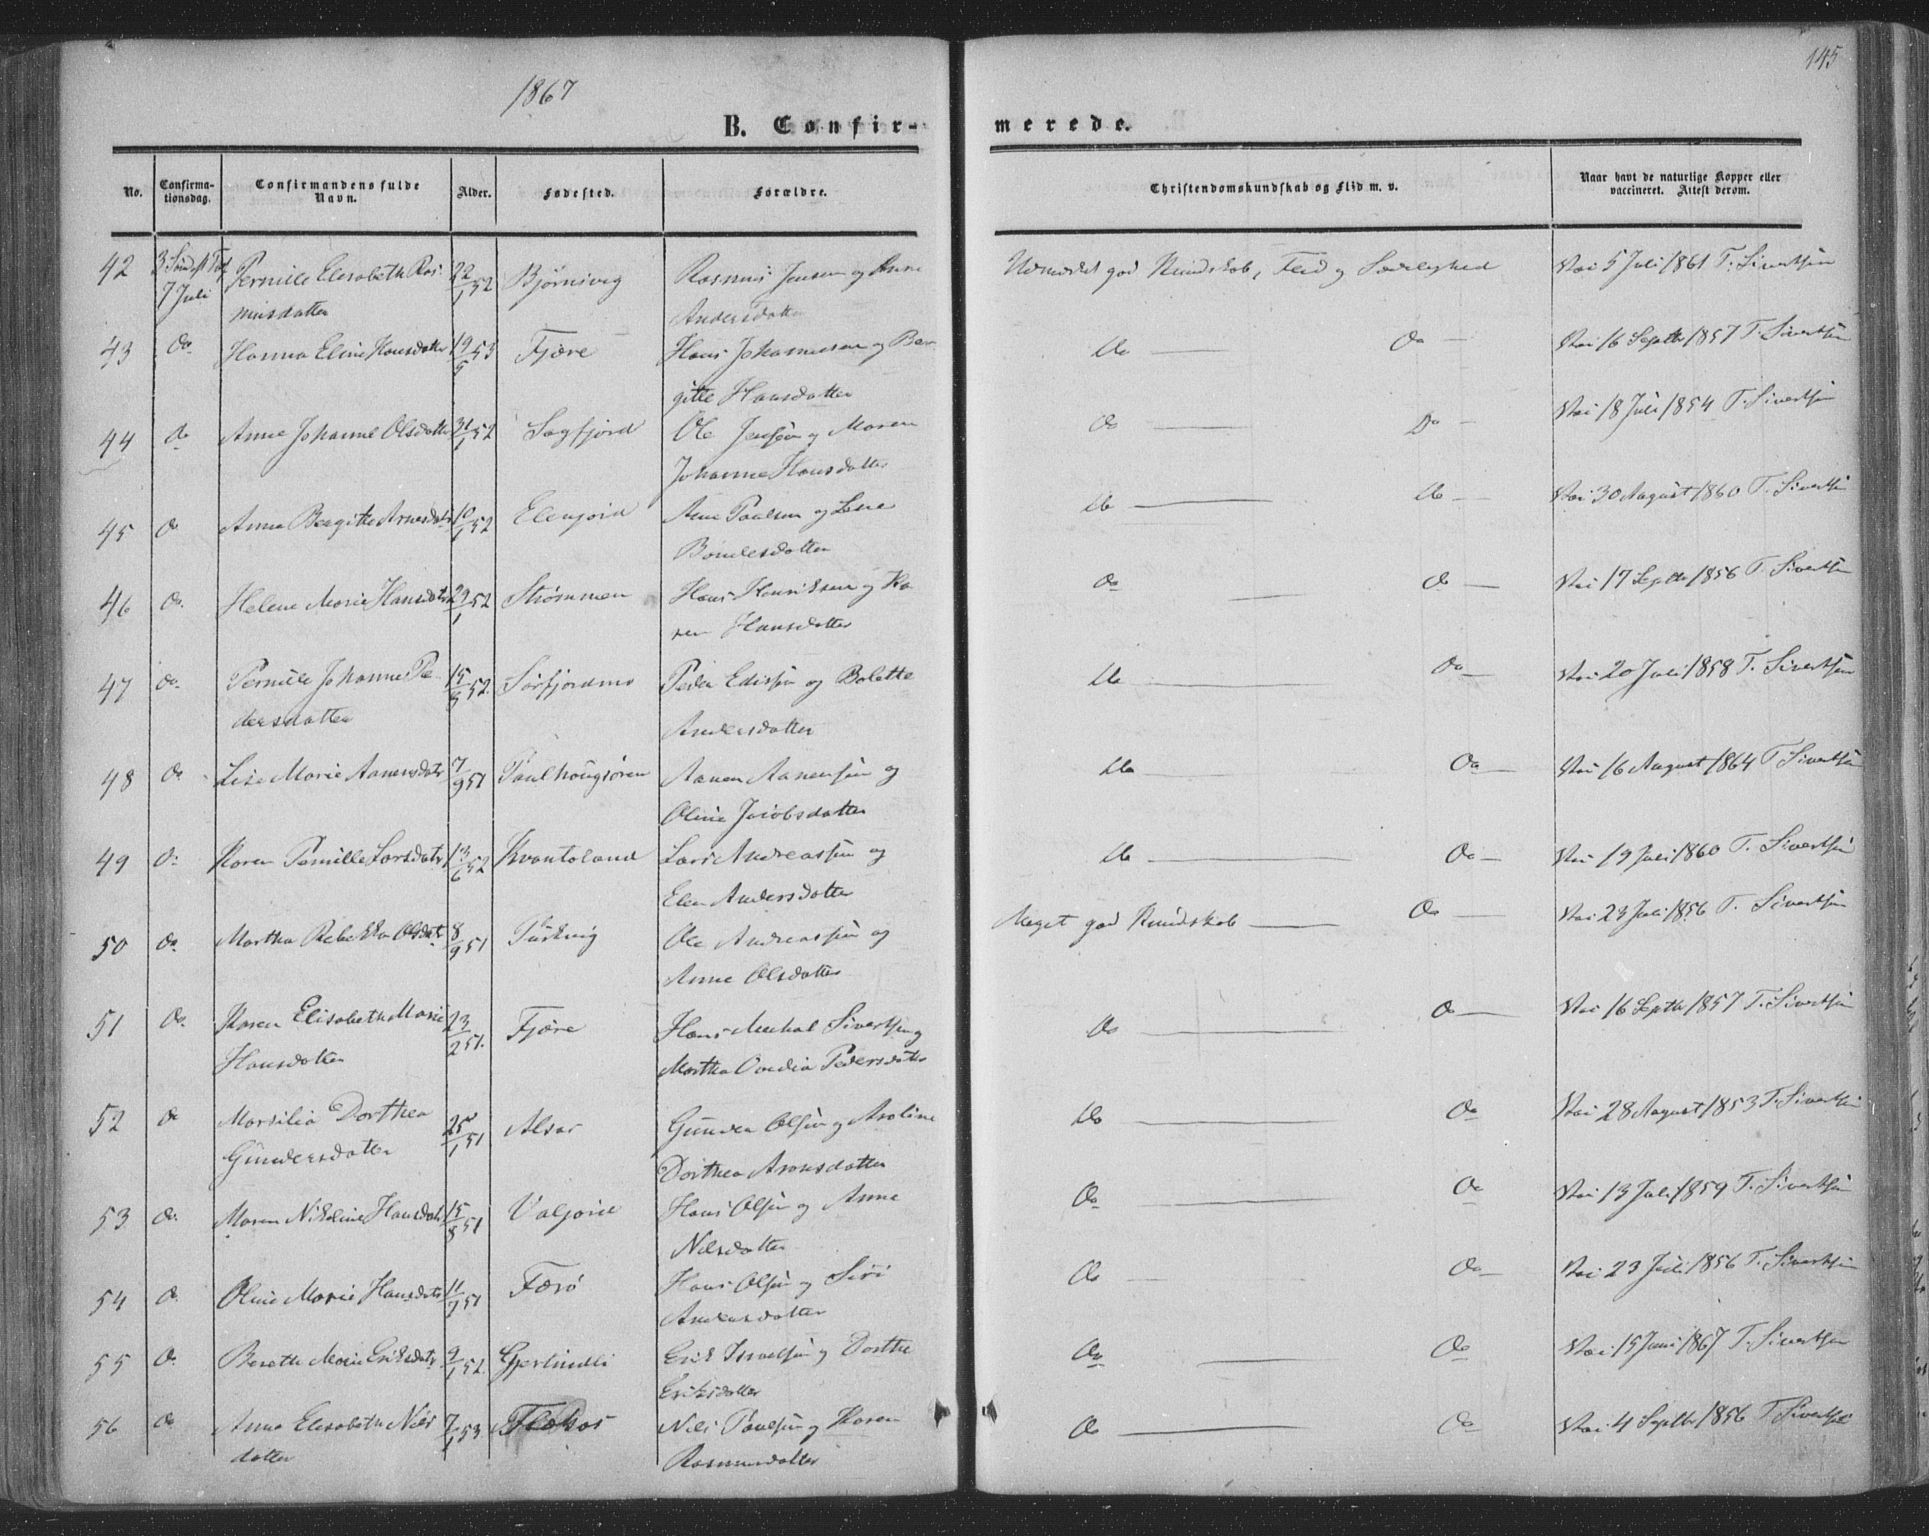 1867
145
B. Confirmerede.
No. Confirmationsdag. Confirmandens fulde Navn. Alder. Fødested. Forældre. Christendomskundskab og Flid m. v. Naar havt de naturlige Kopper eller vaccineret. Attest derom.
42 3 Sønd eft Tref 7 Juli Pernille Elisabeth Ras- 22/1 52 Bjørnsvig Rasmus Jensen og Anne Udmærket god Kundskab, Flid og Sædelighed Vac 5 Juli 1861 T. Sivertsen
musdatter Andersdatter
43 Do Hanna Eline Hansdatter 19/5 53 Fjære Hans Johannesen og Ber Do Do Vac 16 Septbr 1857 T. Sivertsen
gitte Hansdatter
44 Do Anne Johanne Olsdatter 31/1 52 Sagfjord Ole Jensen og Maren Do Do Vac 18 Juli 1854 T. Sivertsen
Johanne Hansdatter
45 Do Anna Bergitte Arnesdatr 10/1 52 Elvegjord Arne Paulsen og Lene Do Do Vac 30 August 1860 T. Sivertsen
46 Do. Helene Marie Hansdatr 29/1 52 Strømmen Hans Henriksen og Ka Do Do Vac 17 Septbr 1856 T. Sivertsen
ren Hansdatter
47 Do. Pernille Johanne Pe- 15/5 52. Sørfjordmo Peder Edissen og Bolette Do Do Vac 20 Juli 1858 T. Sivertsen
dersdatter Andersdatter
48 Do Lise Marie Aanensdatr 7/9 51 Aanen Aanensen og Do Do Vac 16 August 1864 T Sivertsen
Oline Jacobsdatter
49 Do Karen Pernille Larsdatr 13/6 52 Kvantoland Lars Andreassen og Do Do Vac 19 Juli 1860 T. Sivertsen
Elen Andersdatter
50 Do. Martha Rebekka Olsdatr 8/9 51 Ole Andreassen og Meget god Kundskab Do Vac 23 Juli 1856 T. Sivertsen
Anne Olsdatter
51 Do. Karen Elisabeth Marie 23/2 51. Fjære Hans Michal Sivertsen og Do Do Vac 16 Septbr 1857 T. Sivertsen
Hansdatter Martha Ovedia Pedersdatter
52 Do Marsilia Dorthea 25/1 51 Alsos Gunder Olsen og Aroline Do Do Vac 28 August 1853 T. Sivertsen
Gundersdatter Dorthea Aronsdatter
53 Do. Maren Nikoline Hansdatr 15/8 51 Valjord Hans Olsen og Anne Do Do Vac 13 Juli 1859 T. Sivertsen
Nilsdatter
54 Do. Oline Marie Hansdatr 11/7 51 Færø Hans Olsen og Siri Do Do Vac 23 Juli 1856 T. Sivertsen
Andersdatter
55 Do. Bereth Marie Eriksdatr 9/1 52. Gjertindli Erik Israelsen og Dorthe Do Do Vac 15 Juni 1867 T. Sivertsen
Eriksdatter
56 Do Anna Elisabeth Nils 7/1 53 Nils Paulsen og Karen Do Do Vac 4 Septbr 1856 T Sivertsen
datter Rasmusdatter